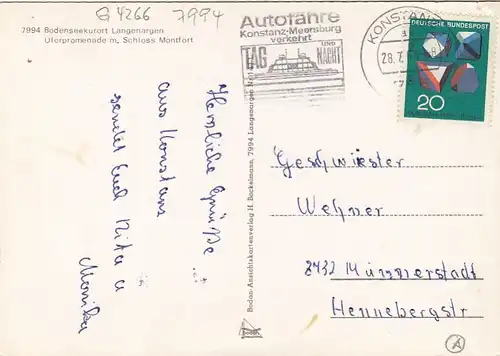 G 4266 7994
7994 Bodenseekurort Langenargen
Uferpromenade m. Schloss Montfort
Autofähre
Konstanz-Meersburg
verkehrt
TAG UND NACHT
KONSTANZ
28.7.
DEUTSCHE BUNDESPOST
20
Herzliche Grüße
aus Konstanz
sendet Euch Rita u
Monika
Bodan-Ansichtskartenverlag H. Bockelmann, 7994 Langenargen
Geschwister
Wehner
8732 Münnerstadt
Hennebergstr
A